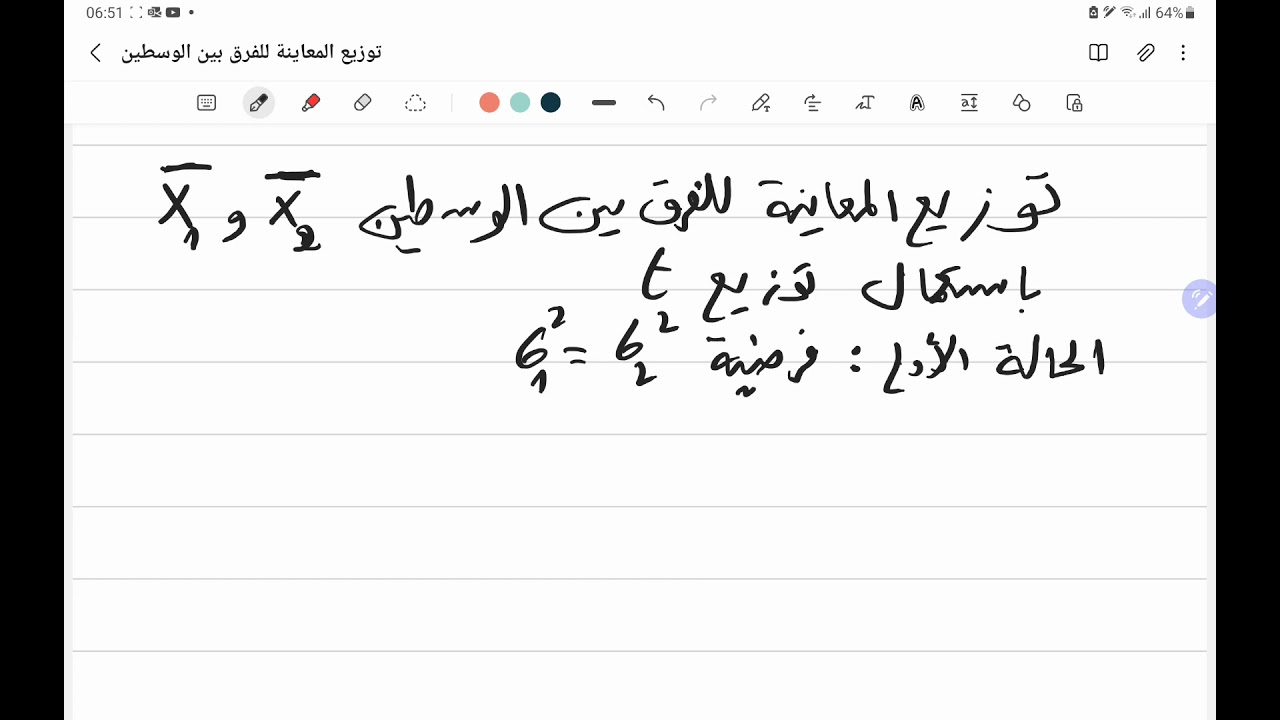 06:51
64%
توزيع المعاينة للفرق بين الوسطين
توزيع المعاينة للفرق بين الوسطين X̅₂ و X̅₁
باستعمال توزيع t
الحالة الأولى : فرضية σ₂² = σ₁²